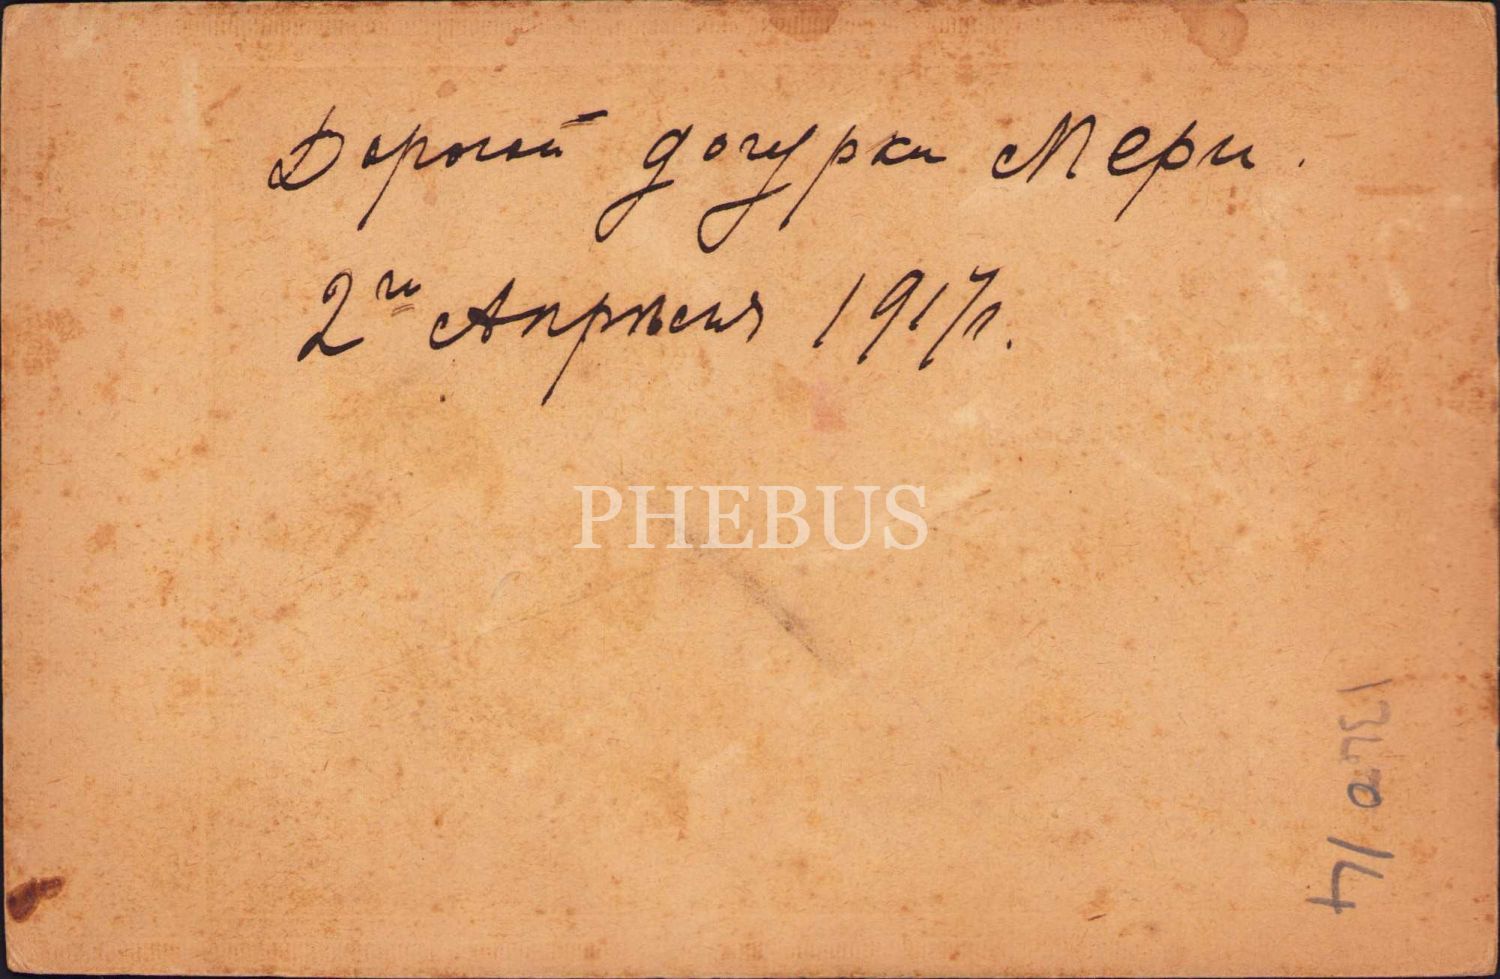 Дорогой дочурки Мери.
2го Апрѣля 1917г.
PHEBUS